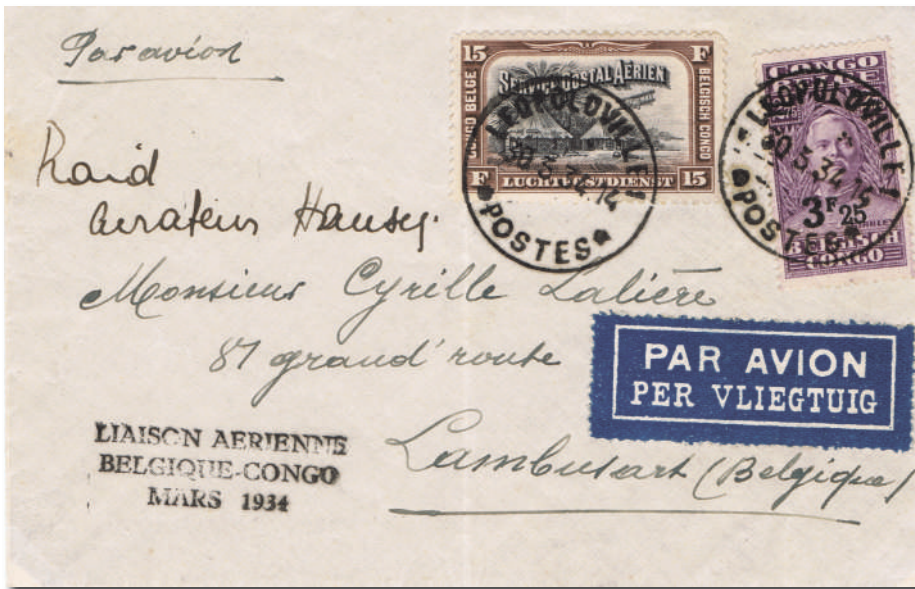 Par avion
15 F
SERVICE POSTAL AÉRIEN
CONGO BELGE
BELGISCH CONGO
F LUCHTPOSTDIENST 15
LEOPOLDVILLE 1
30 3 34 14
POSTES
CONGO
BELGE
3F 25
BELGISCH
CONGO
LEOPOLDVILLE 1
30 3 34 14
POSTES
Raid
aviateur Hansez.
Monsieur Cyrille Lalière
87 grand'route
PAR AVION
PER VLIEGTUIG
Lambusart (Belgique)
LIAISON AERIENNE
BELGIQUE-CONGO
MARS 1934